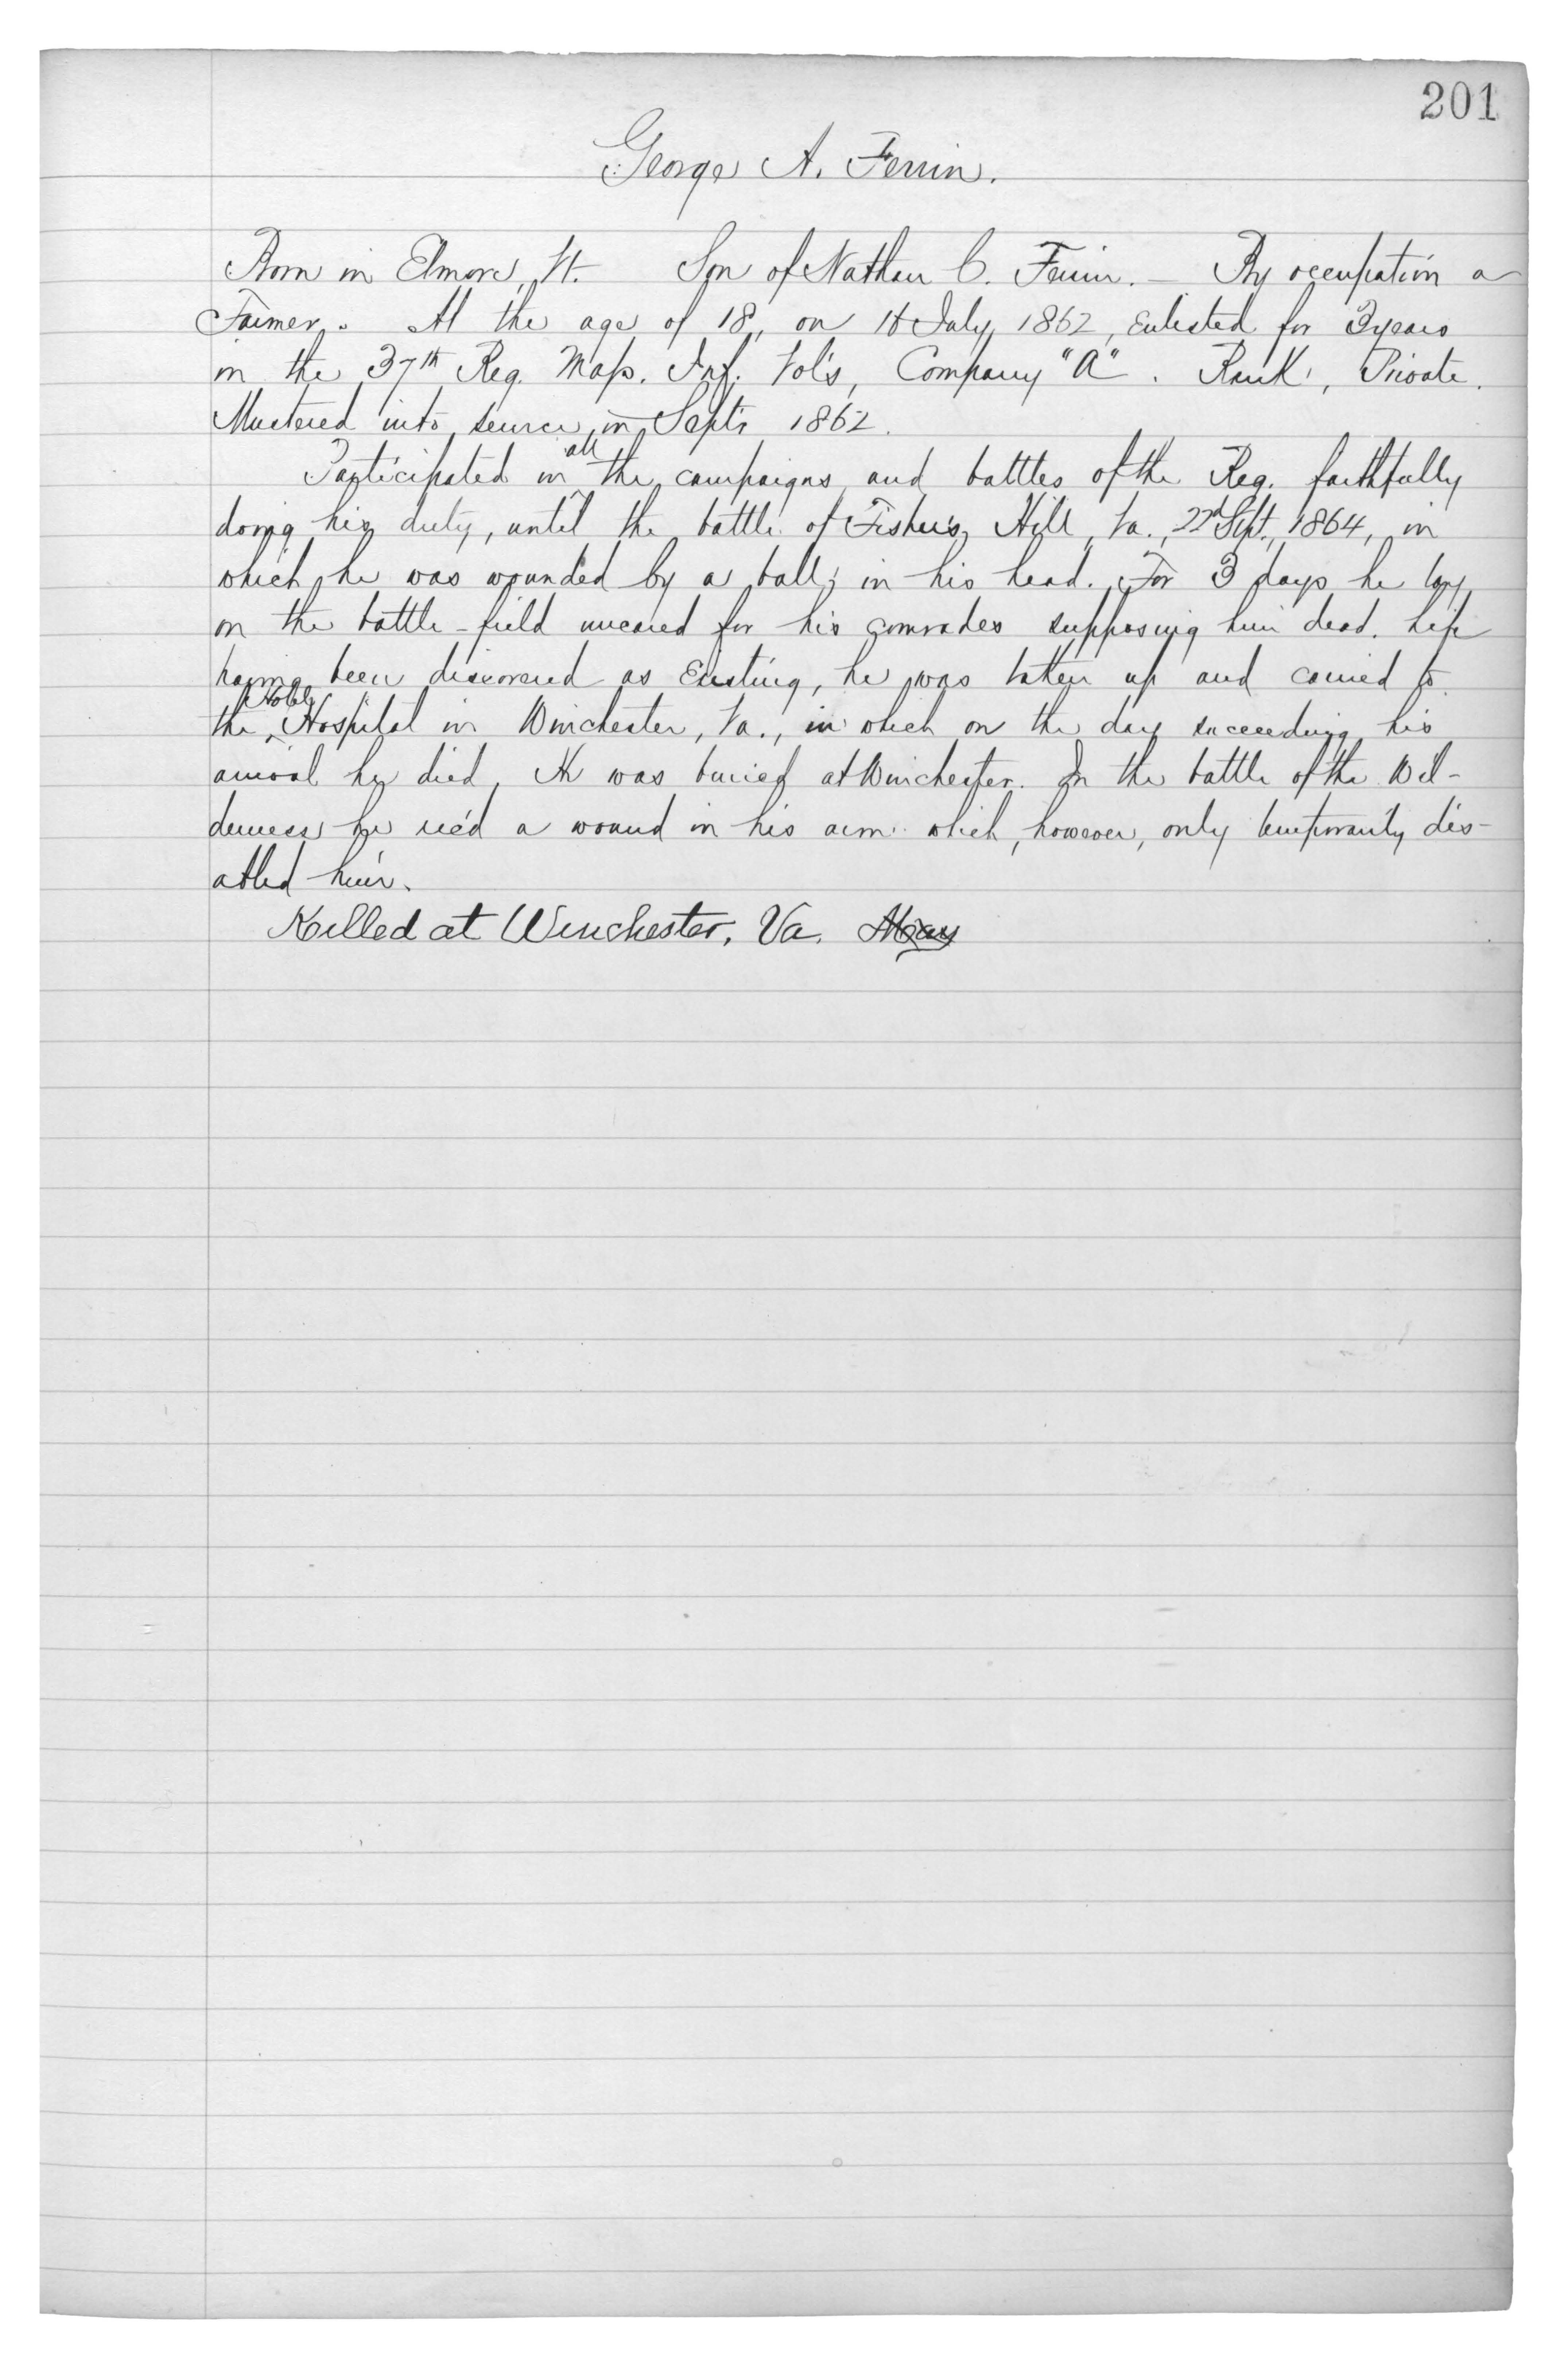 201
George A. Ferrin.
Born in Elmore, Vt. Son of Nathan C. Ferrin. — By occupation a
Farmer. At the age of 18, on July, 1862, enlisted for 3 years
in the 37th Reg. Mass. Inf. Vol's, Company "A". Rank, Private.
Mustered into service in Sept. 1862.
Participated in all the campaigns and battles of the Reg. faithfully
doing his duty, until the battle of Fisher's Hill, Va., 22d Sept., 1864, in
which he was wounded by a ball in his head. For 3 days he lay
on the battle-field uncared for his comrades supposing him dead. Life
having been discovered as existing, he was taken up and carried to
the Hospital in Winchester, Va., in which on the day succeeding his
arrival he died. He was buried at Winchester. In the battle of the Wil-
derness he rec'd a wound in his arm which, however, only temporarily dis-
abled him.
Killed at Winchester, Va. May